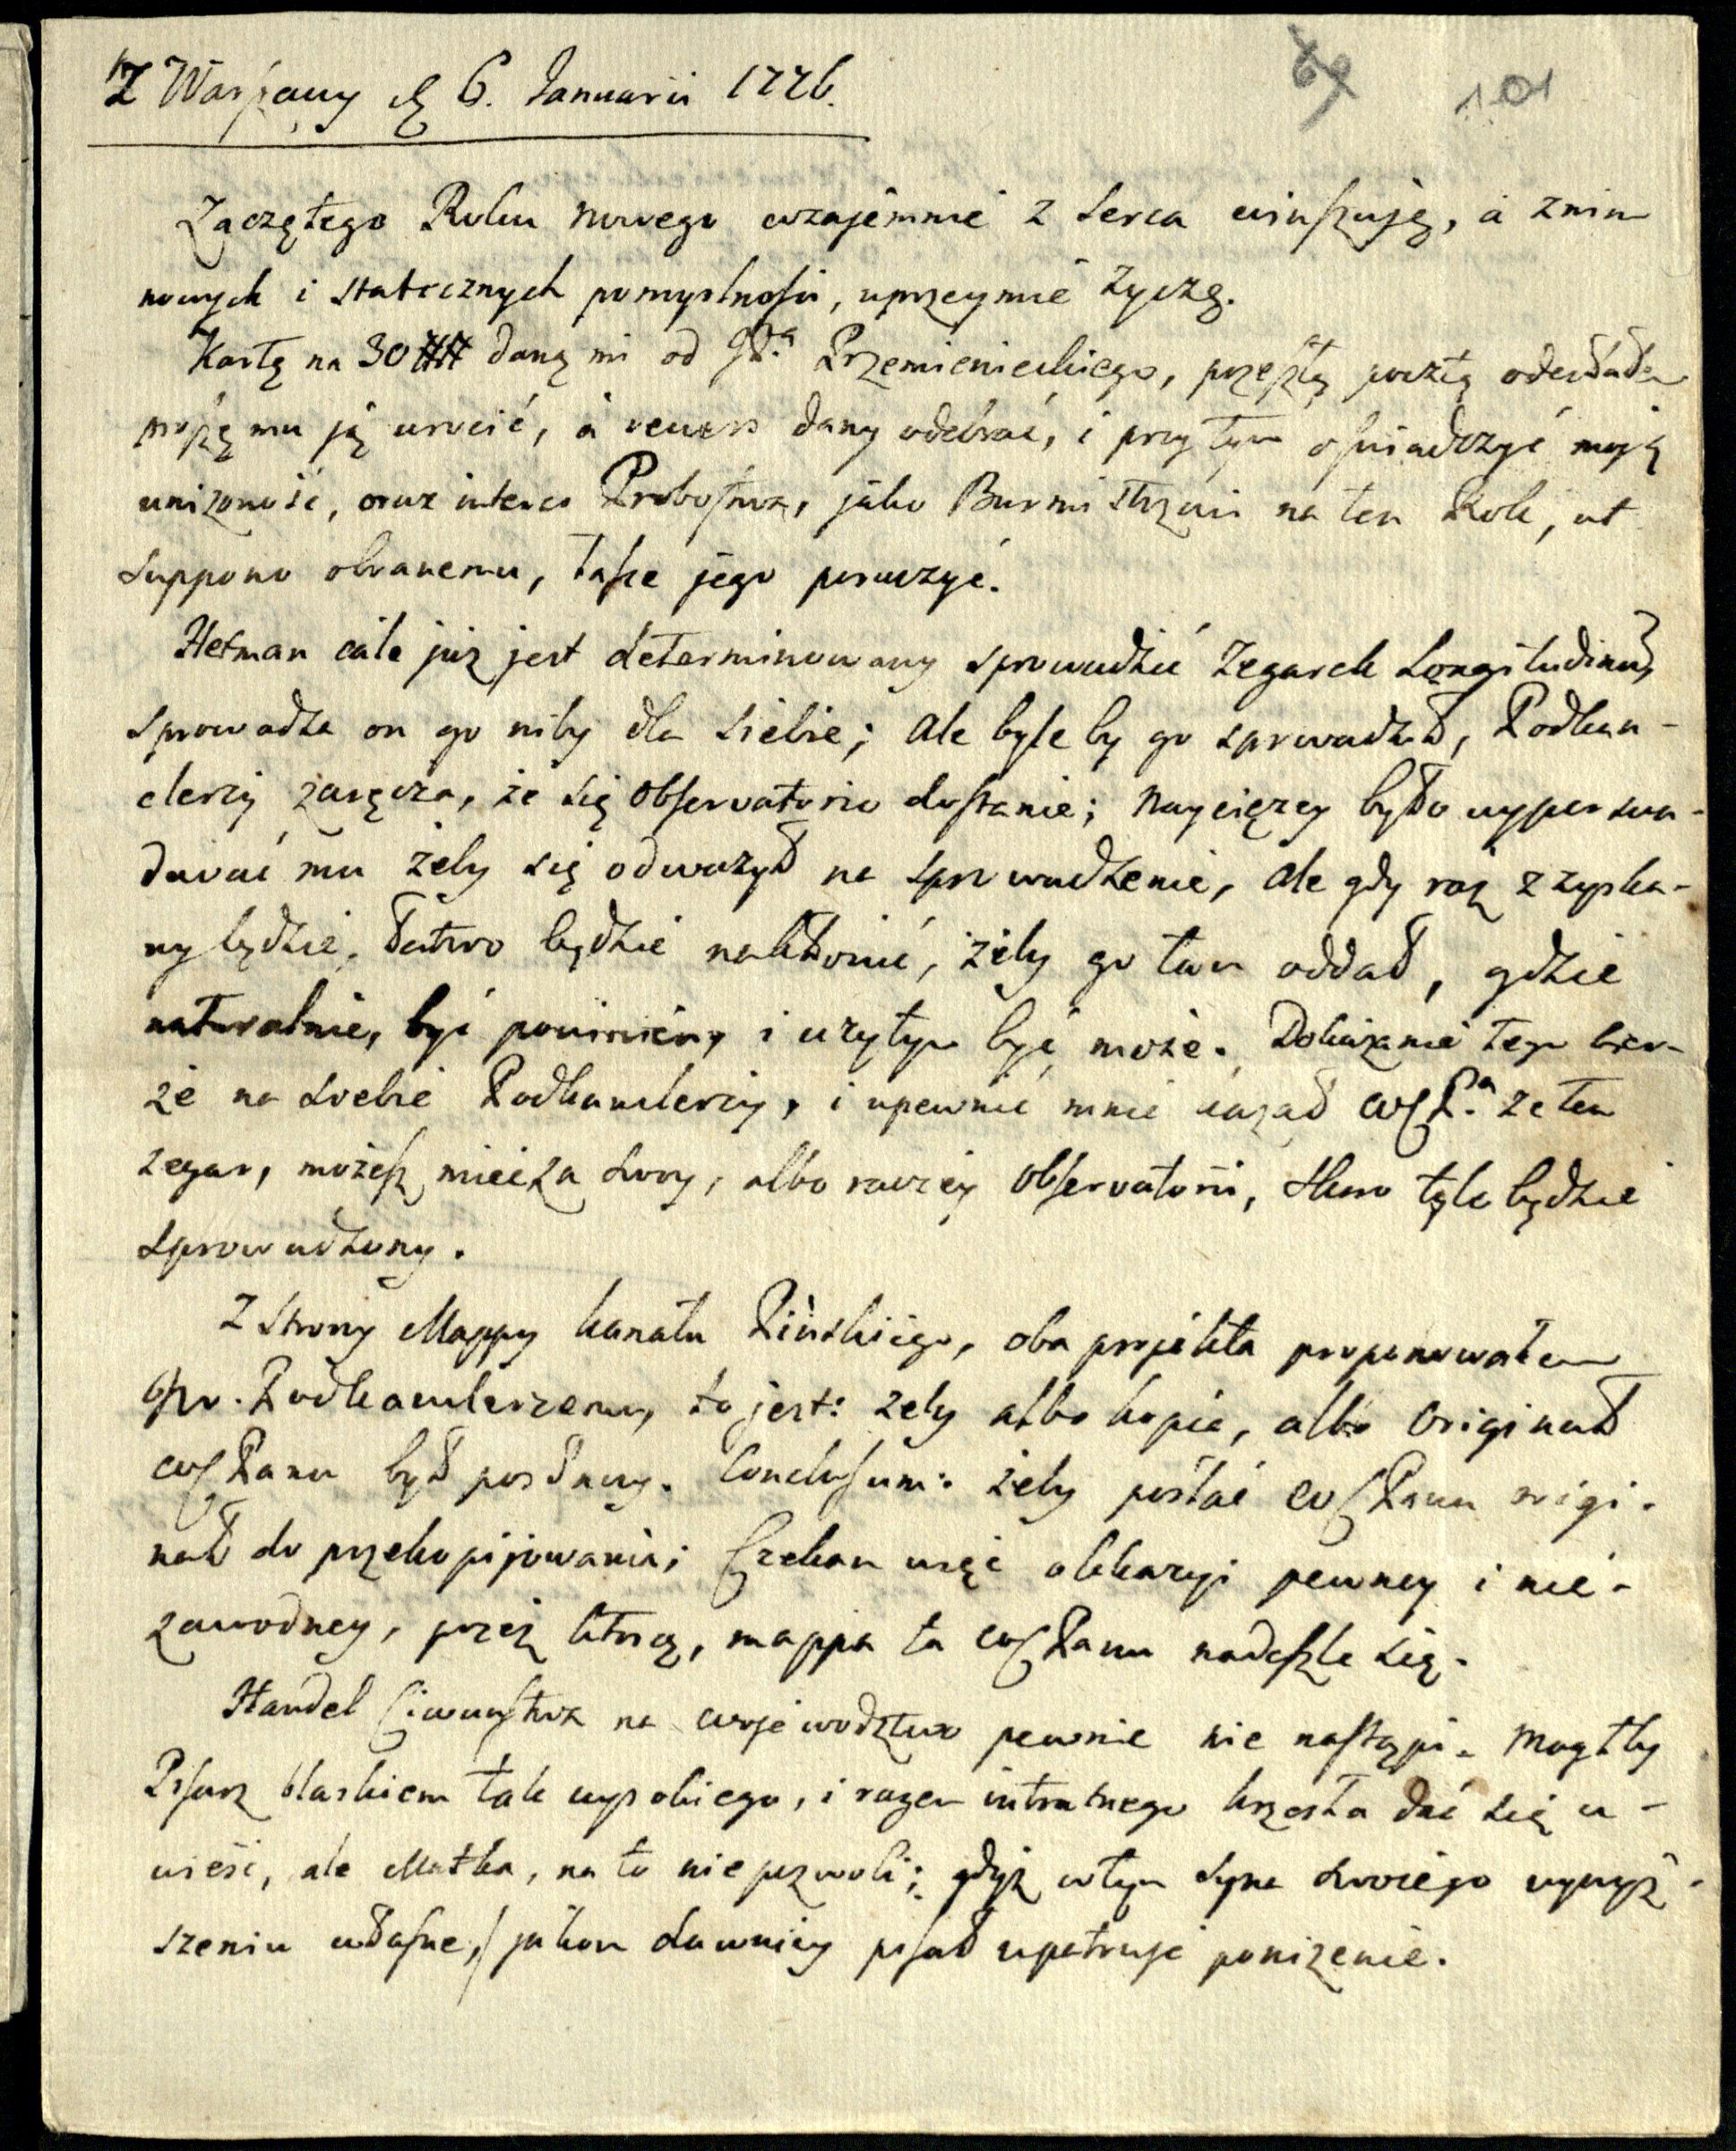 Z Warszawy d. 6. Januarii 1776.
101
Zaczętego Roku nowego wzajemnie z serca winszuję, a z nim
nowych i statecznych pomyslności, uprzeymie zyczę.
Kartę na 30 daną mi od Przemienieckiego, przeszłą pocztą odesłałem
proszę mu ją wrocić, a rewers dany odebrać, i przy tym oświadczyć moją
unizoność, oraz interes Probostwa, jako Burmistrzowi na ten Rok, ut
suppono obranemu, łasce jego poruczyć.
Hetman cale już jest determinowany sprowadzić Zegarek Longitudinum,
sprowadza on go niby dla siebie; ale byle by go sprowadził, Podkan-
clerzy zaręcza, że się Observatorio dostanie; naycięzey było wyperswa-
dować mu żeby się odwazył na sprowadzenie, ale gdy raz zzyska-
ny będzie, łatwo będzie nakłonić, żeby go tam oddał, gdzie
naturalnie, być powinien, i uzytym być może. Dokazanie tego bie-
że na siebie Podkanclerzy, i upewnić mnie kazał WJPa że ten
zegar, możesz mieć za swoy, albo raczey Observatorii, skoro tylo będzie
sprowadzony.
Z strony Mappy kanału Pińskiego, oba projekta proponowałem
JPr. Podkanclerzemu, to jest: zeby albo kopia, albo Originał
WJPanu był posłany. Conclusum: żeby posłać WJPanu origi-
nał do przekopijowania; Czekam więc okkazyi pewney i nie-
zawodney, przez ktorą, mappa ta WJPanu nadeszle się.
Handel Ciwunstwa na Wojewodztwo pewnie nie nastąpi. Mogłby
Pisarz blaskiem tak wysokiego, i razem intratnego krzesła dać się u-
wieść, ale Matka, na to nie pozwoli; gdyż w tym syna swoiego wywyż-
szeniu własne, jakom dawniey pisał upatruje ponizenie.